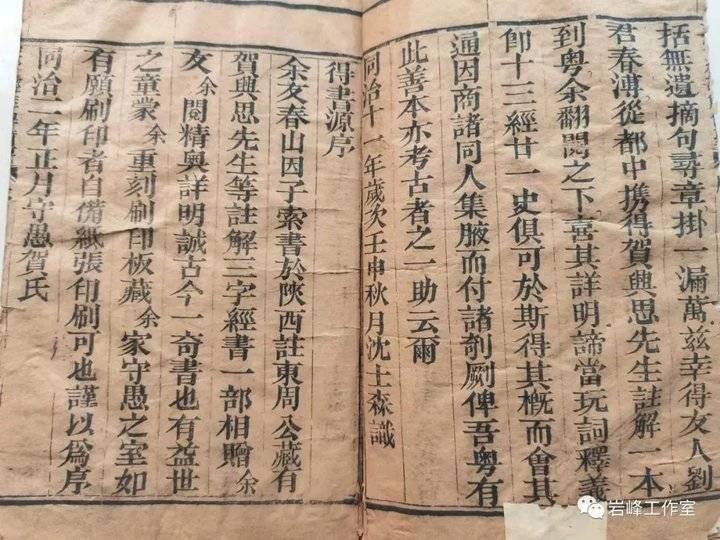 括無遺摘句尋章掛一漏萬茲幸得友人劉
君春溥從都中携得賀興思先生註解一本
到粵余翻閱之下喜其詳明諦當玩詞釋義
卽十三經廿一史俱可於斯得其槪而會其
通因商諸同人集腋而付諸剞劂俾吾粵有
此善本亦考古者之一助云爾
同治十一年歲次壬申秋月沈士森識
得書源序
余友春山因子索書於陝西註東周公藏有
賀興思先生等註解三字經書一部相贈余
友余閱精奧詳明誠古今一奇書也有益世
之童蒙余重刻刷印板藏余家守愚之室如
有願刷印者自備紙張印刷可也謹以爲序
同治二年正月守愚賀氏
岩峰工作室